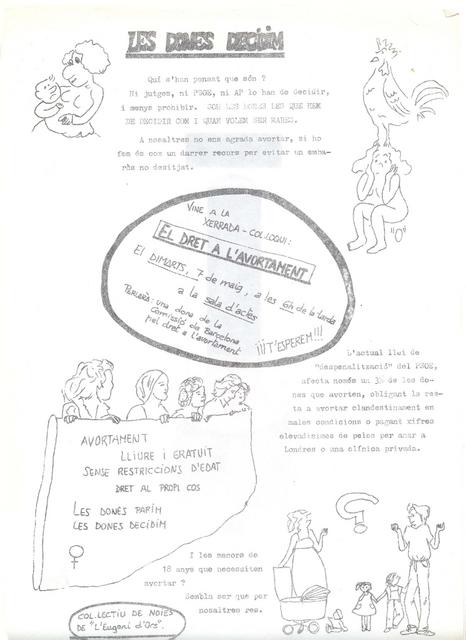 LES DONES DECIDIM
Qui s'han pensat que són ?
Ni jutges, ni PSOE, ni AP lo han de decidir,
i menys prohibir. SOM LES DONES LES QUE HEM
DE DECIDIR COM I QUAN VOLEM SER MARES.
A nosaltres no ens agrada avortar, si ho
fem és com un darrer recurs per evitar un emba-
ràs no desitjat.
"O"
VINE A LA
XERRADA-COLLOQUI:
EL DRET A L'AVORTAMENT
EL DIMARTS, 7 de maig, a les 6h de la tarda
a la sala d'actes
PARLARÀ: una dona de la
Comissió de Barcelona
pel dret a l'avortament
¡¡¡T'ESPEREM!!!
L'actual llei de
"despenalització" del PSOE,
afecta només un 3% de les do-
nes que avorten, obligant la res-
ta a avortar clandestinament en
males condicions o pagant xifres
elevadísimes de peles per anar a
Londres o una clínica privada.
AVORTAMENT
LLIURE I GRATUIT
SENSE RESTRICCIONS D'EDAT
DRET AL PROPI COS
LES DONES PARIM
LES DONES DECIDIM
I les menors de
18 anys que necessiten
avortar ?
Sembla ser que per
nosaltres res.
?
COL.LECTIU DE NOIES
DE "L'Eugeni d'Ors".